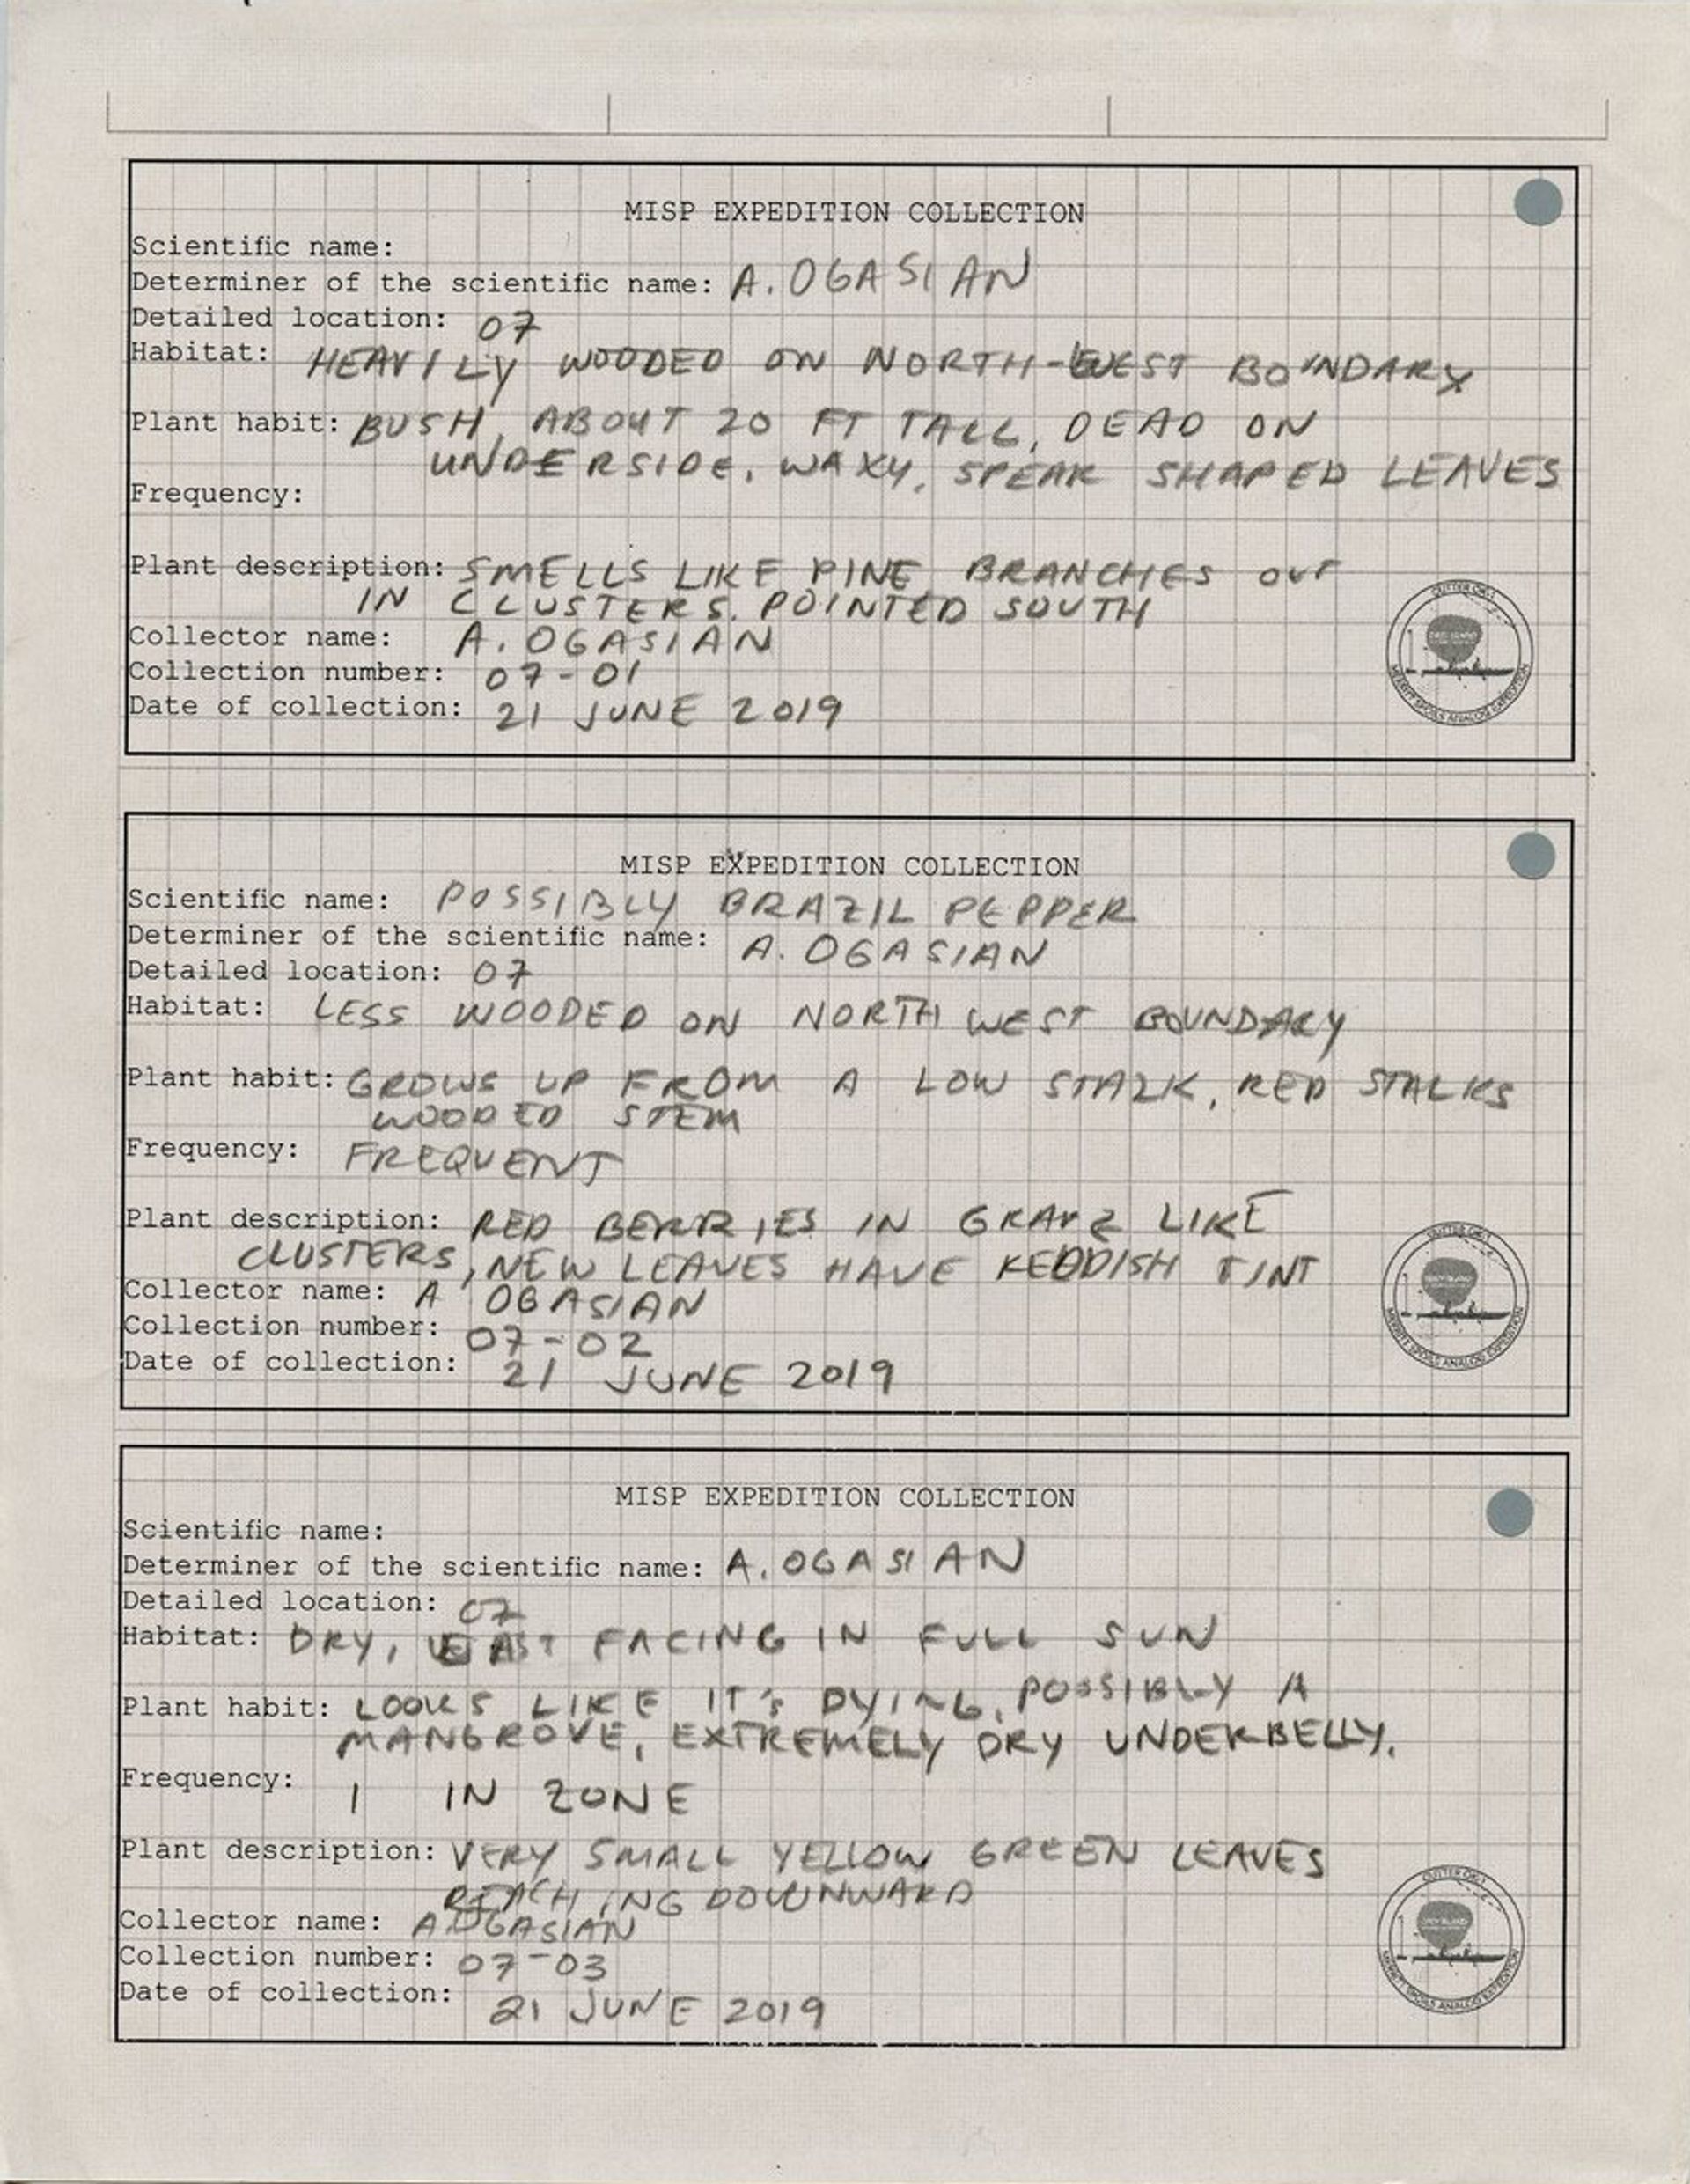 MISP EXPEDITION COLLECTION
Scientific name:
Determiner of the scientific name: A. OGASIAN
Detailed location: 07
Habitat: HEAVILY WOODED ON NORTH-WEST BOUNDARY
Plant habit: BUSH, ABOUT 20 FT TALL, DEAD ON
UNDERSIDE, WAXY, SPEAR SHAPED LEAVES
Frequency:
Plant description: SMELLS LIKE PINE, BRANCHES OUT
IN CLUSTERS. POINTED SOUTH
Collector name: A. OGASIAN
Collection number: 07-01
Date of collection: 21 JUNE 2019
MERRITT SPOILS ANALOG EXPEDITION
MISP EXPEDITION COLLECTION
Scientific name: POSSIBLY BRAZIL PEPPER
Determiner of the scientific name: A. OGASIAN
Detailed location: 07
Habitat: LESS WOODED ON NORTH WEST BOUNDARY
Plant habit: GROWS UP FROM A LOW STALK, RED STALKS
WOODED STEM
Frequency: FREQUENT
Plant description: RED BERRIES IN GRAPE LIKE
CLUSTERS, NEW LEAVES HAVE REDDISH TINT
Collector name: A OGASIAN
Collection number: 07-02
Date of collection: 21 JUNE 2019
MERRITT SPOILS ANALOG EXPEDITION
MISP EXPEDITION COLLECTION
Scientific name:
Determiner of the scientific name: A. OGASIAN
Detailed location: 07
Habitat: DRY, EAST FACING IN FULL SUN
Plant habit: LOOKS LIKE IT'S DYING, POSSIBLY A
MANGROVE, EXTREMELY DRY UNDERBELLY.
Frequency: 1 IN ZONE
Plant description: VERY SMALL YELLOW GREEN LEAVES
REACHING DOWNWARD
Collector name: A. OGASIAN
Collection number: 07-03
Date of collection: 21 JUNE 2019
MERRITT SPOILS ANALOG EXPEDITION